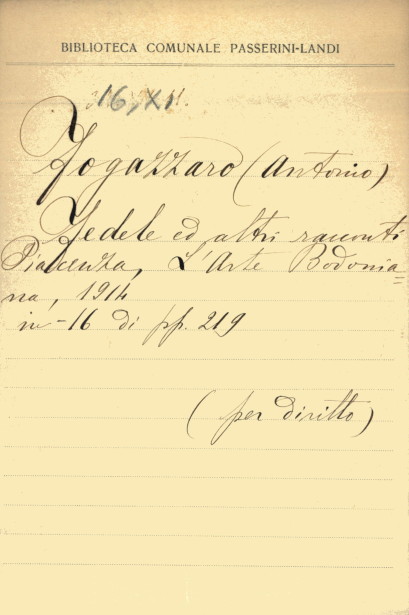 BIBLIOTECA COMUNALE PASSERINI-LANDI
16, XI,
Fogazzaro (Antonio)
Fedele ed altri racconti
Piacenza, L'Arte Bodonia=
na, 1914
in-16 di pp. 219
(per diritto)